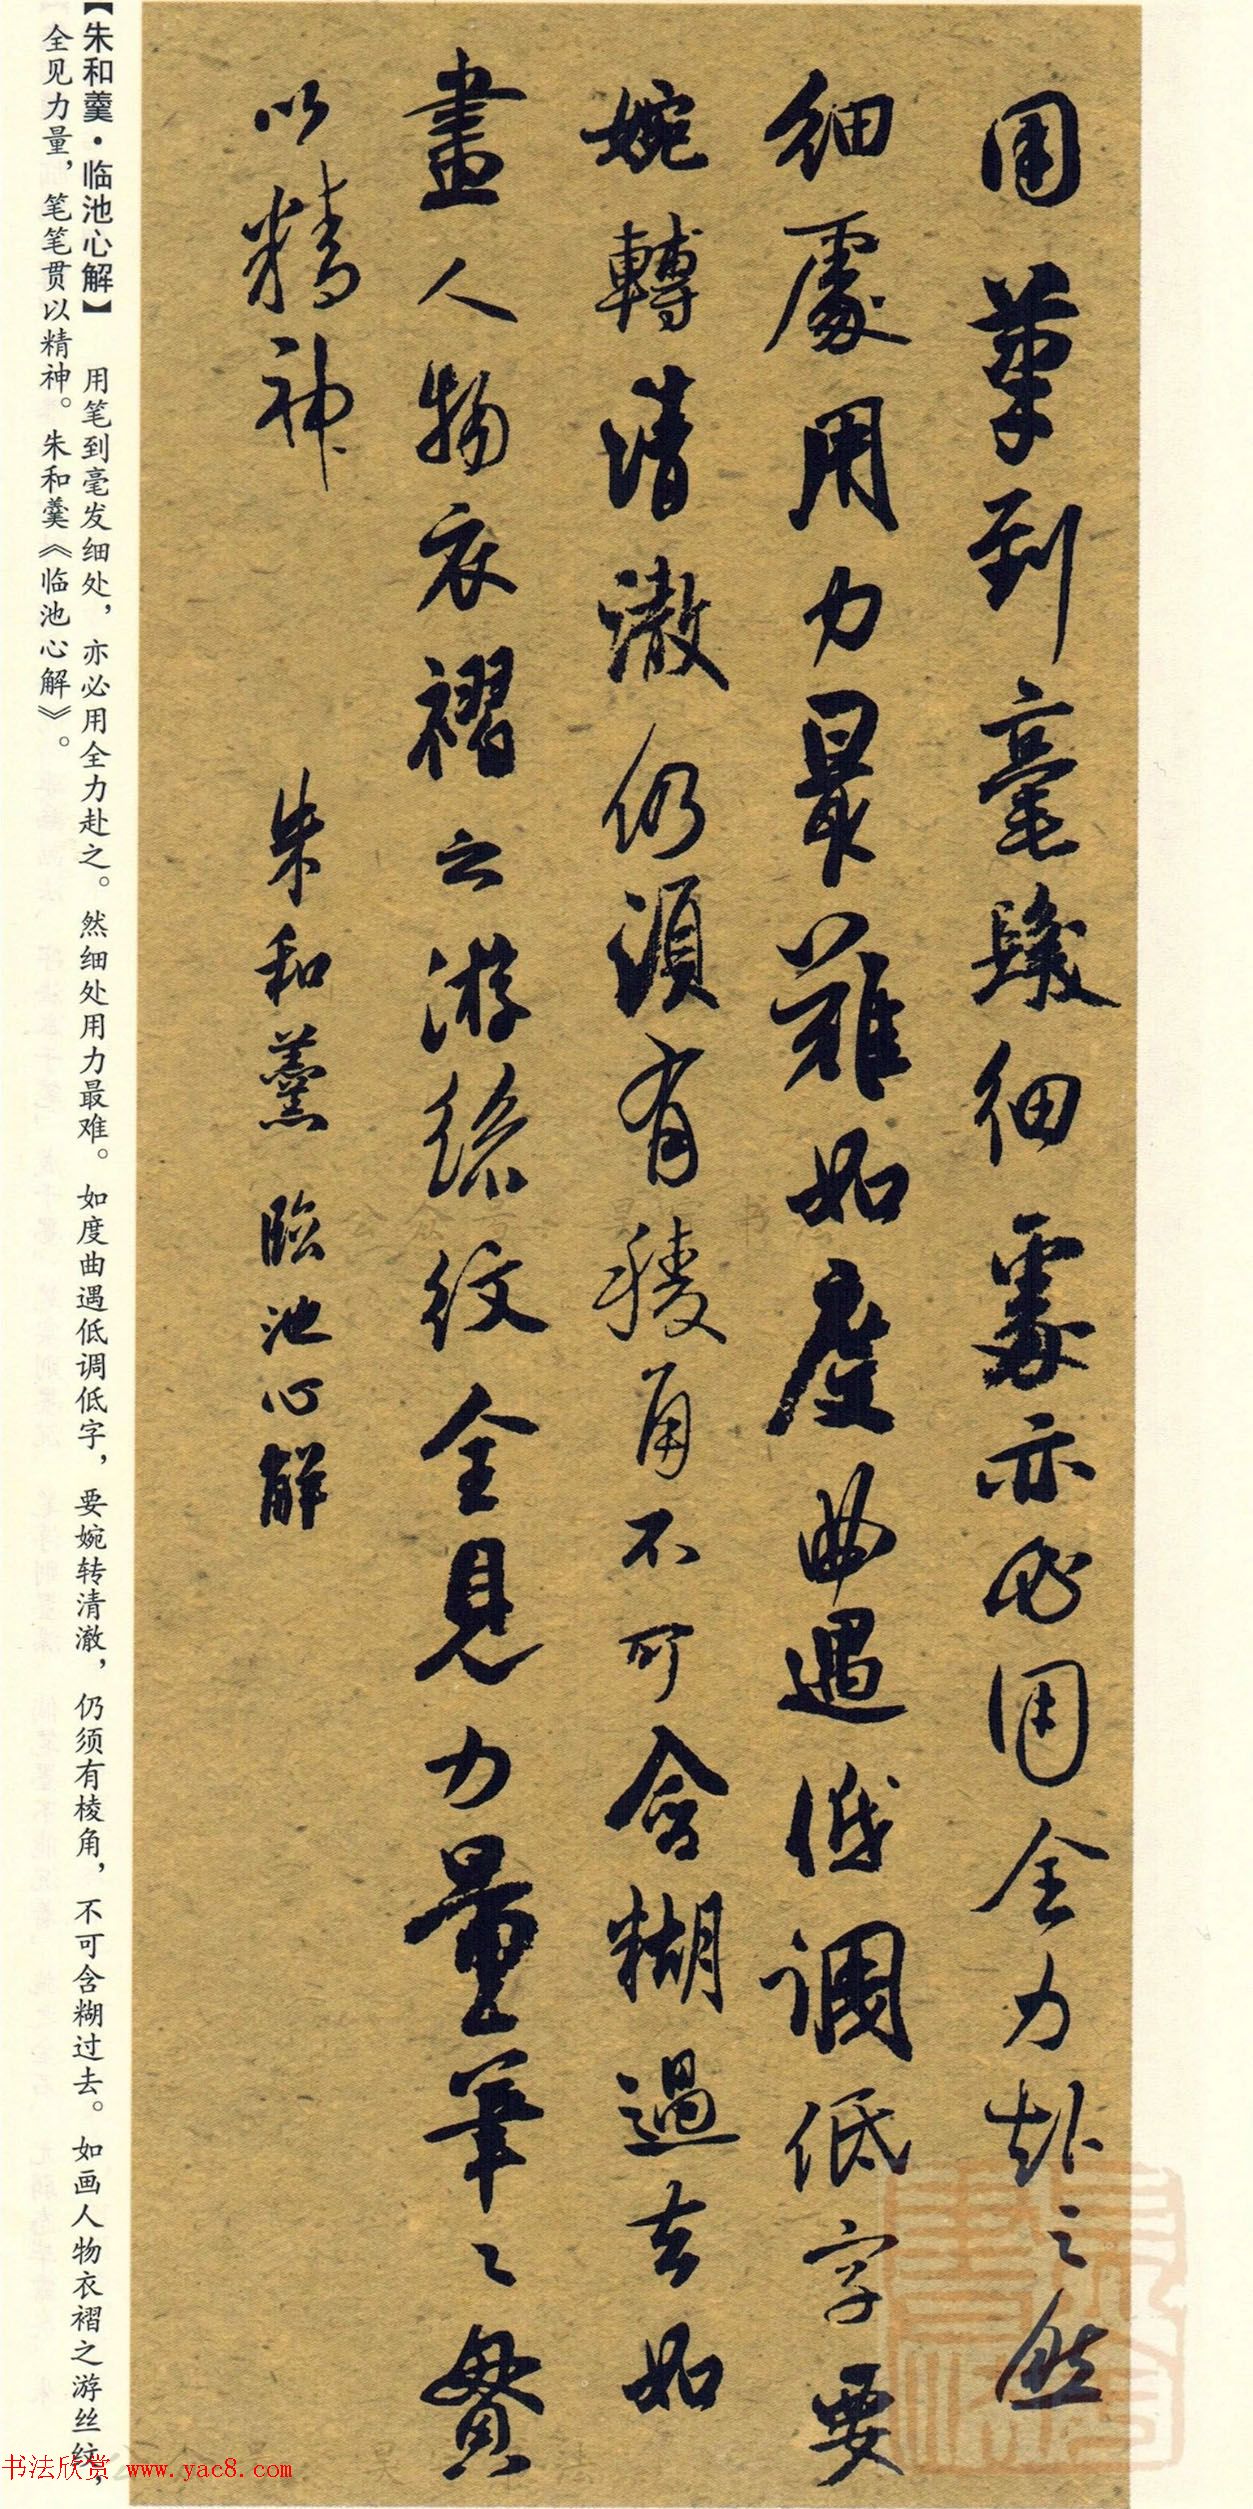 用筆到毫髮細處亦必用全力赴之然
細處用力最難如度曲遇低調低字要
婉轉清澈仍須有稜角不可含糊過去如
畫人物衣褶之游絲紋全見力量筆〻貫
以精神　朱和羹臨池心解
【朱和羹·临池心解】　用笔到毫发细处，亦必用全力赴之。然细处用力最难。如度曲遇低调低字，要婉转清澈，仍须有棱角，不可含糊过去。如画人物衣褶之游丝纹，
全见力量，笔笔贯以精神。朱和羹《临池心解》。
书法欣赏 www.yac8.com